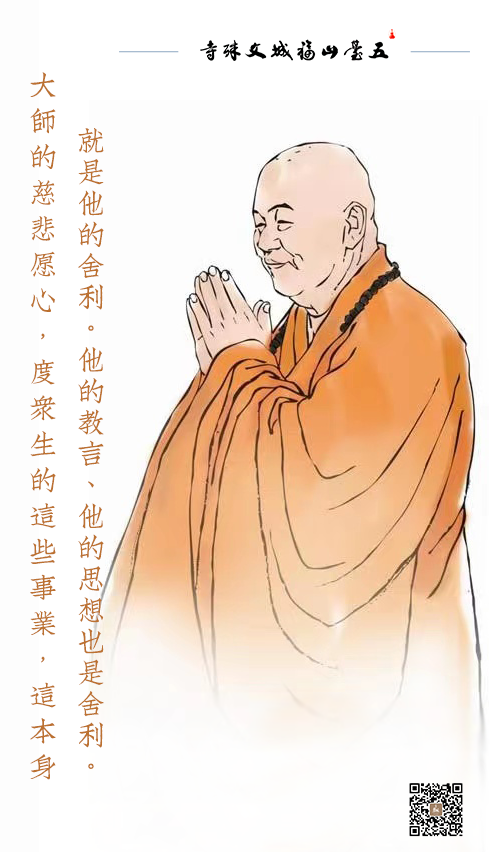 五臺山福城文殊寺
大師的慈悲愿心，度衆生的這些事業，這本身
就是他的舍利。他的教言、他的思想也是舍利。